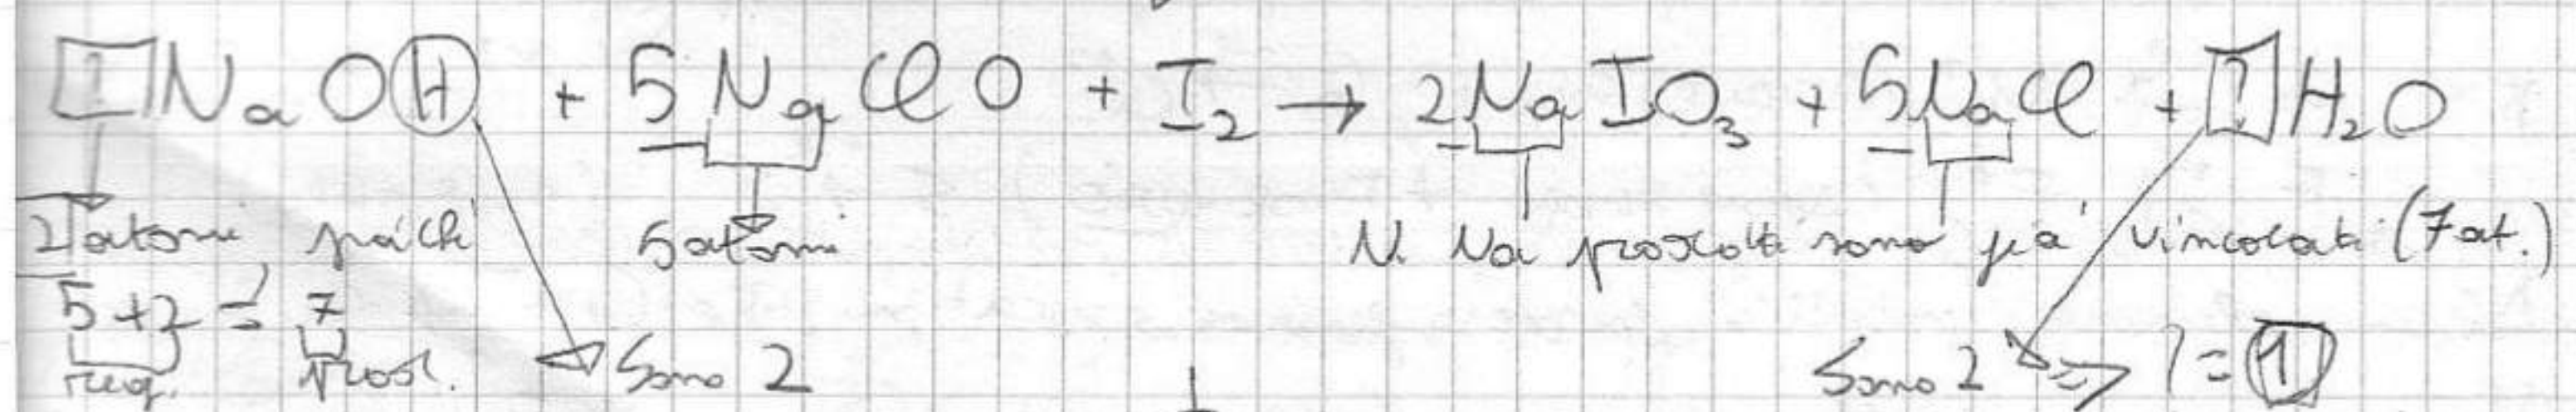 ? NaOH + 5 NaClO + I₂ → 2 NaIO₃ + 5 NaCl + ? H₂O
2 atomi, poiché 5 atomi N. Na prodotti sono già vincolati (7 at.)
5+2 = 7
reag. prod. Sono 2 Sono 2 => ? = 1